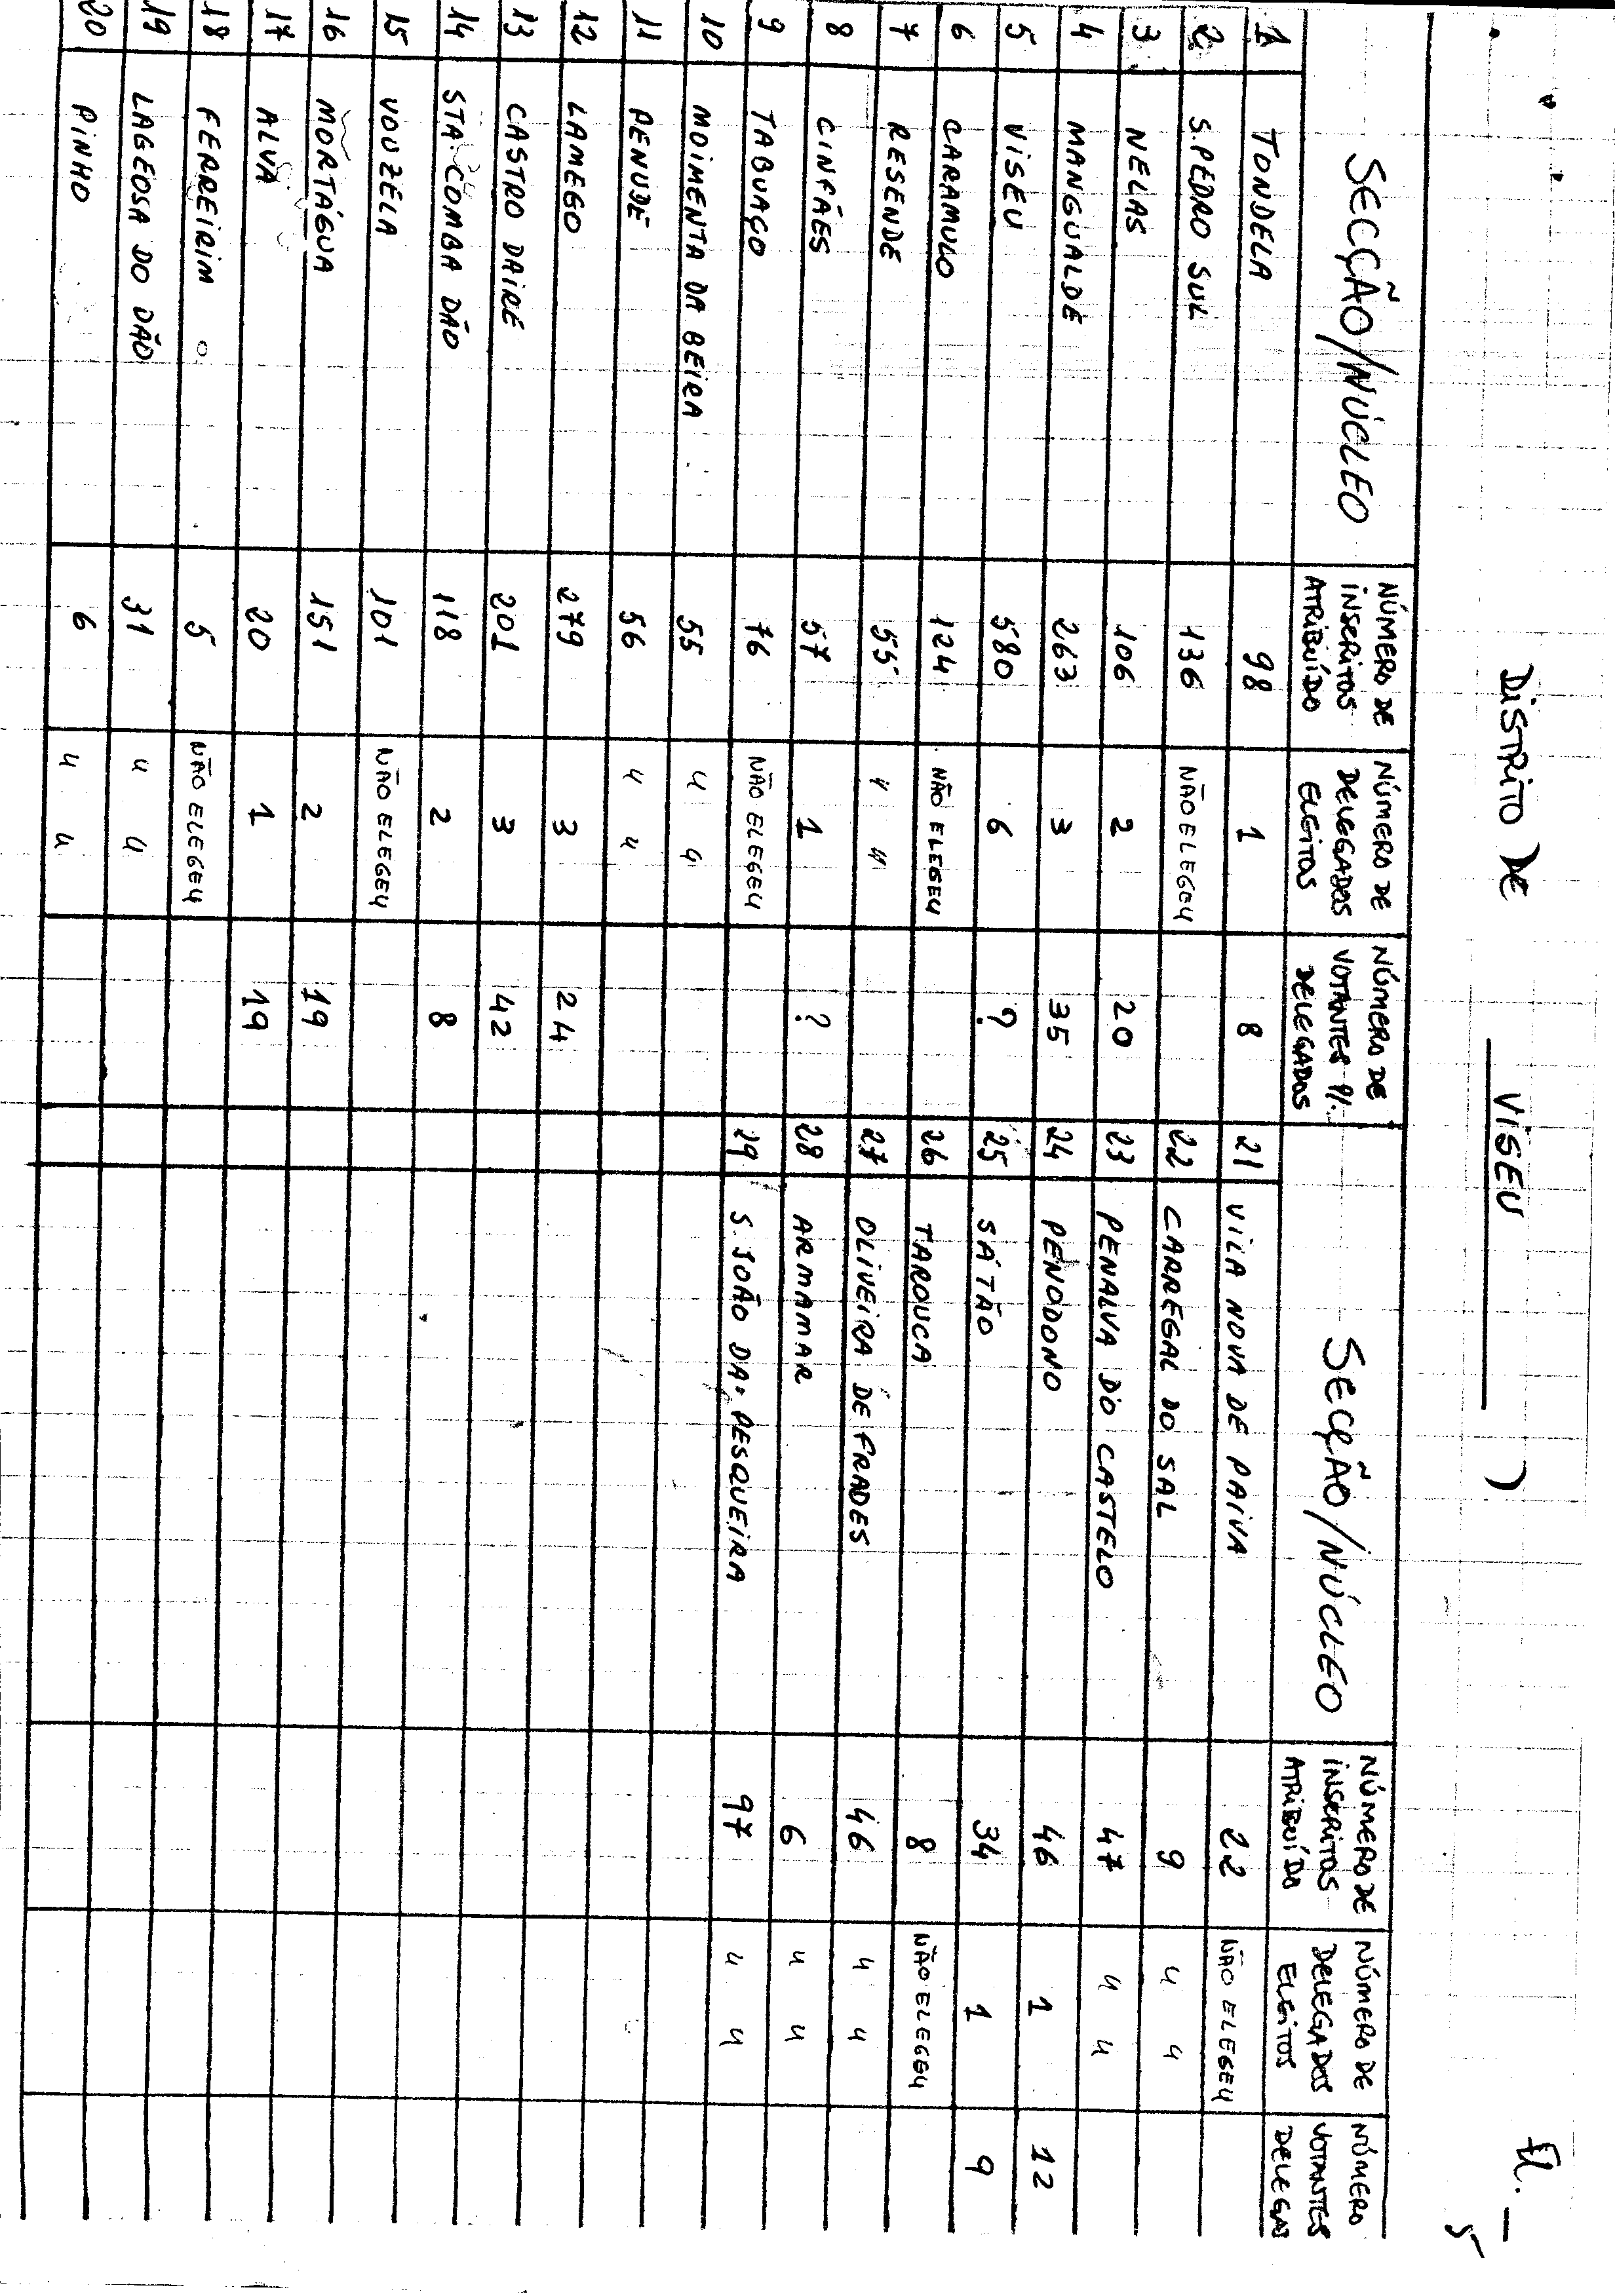 DISTRITO DE VISEU )
Fl. 5
SECÇÃO/NÚCLEO NÚMERO DE INSCRITOS ATRIBUÍDO NÚMERO DE DELEGADOS ELEITOS NÚMERO DE VOTANTES P/. DELEGADOS
1 TONDELA 98 1 8
2 S. PEDRO SUL 136 NÃO ELEGEU
3 NELAS 106 2 20
4 MANGUALDE 263 3 35
5 VISEU 580 6 ?
6 CARAMULO 124 NÃO ELEGEU
7 RESENDE 55 " "
8 CINFÃES 57 1 ?
9 TABUAÇO 76 NÃO ELEGEU
10 MOIMENTA DA BEIRA 55 " "
11 PENUDE 56 " "
12 LAMEGO 279 3 24
13 CASTRO DAIRE 201 3 42
14 STA COMBA DÃO 118 2 8
15 VOUZELA 101 NÃO ELEGEU
16 MORTÁGUA 151 2 19
17 ALVA 20 1 19
18 FERREIRIM 5 NÃO ELEGEU
19 LAGEOSA DO DÃO 31 " "
20 PINHO 6 " "
SECÇÃO/NÚCLEO NÚMERO DE INSCRITOS ATRIBUÍDO NÚMERO DE DELEGADOS ELEITOS NÚMERO VOTANTES DELEGAD
21 VILA NOVA DE PAIVA 22 NÃO ELEGEU
22 CARREGAL DO SAL 9 " "
23 PENALVA DO CASTELO 47 " "
24 PENODONO 46 1 12
25 SÁTÃO 34 1 9
26 TAROUCA 8 NÃO ELEGEU
27 OLIVEIRA DE FRADES 46 " "
28 ARMAMAR 6 " "
29 S. JOÃO DA. PESQUEIRA 97 " "